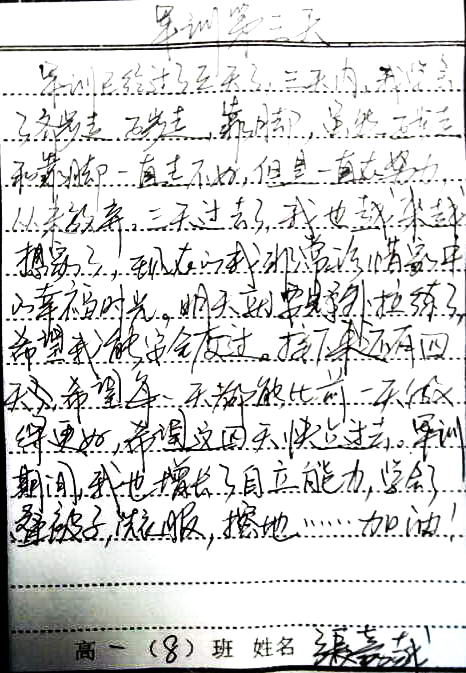 军训第三天
军训已经过了三天了，三天内，我学会
了齐步走，正步走，靠脚，虽然正步走
和靠脚一直走不好，但是一直在努力，
从未放弃。三天过去了，我也越来越
想家了，现在的我非常珍惜家里
的幸福时光。明天就要野外拉练了，
希望我能安全度过。接下来还有四
天，希望每一天都能比前一天做
得更好，希望这四天快点过去。军训
期间，我也增长了自立能力，学会了
叠被子，洗衣服，擦地……加油！
高一（8）班 姓名 张